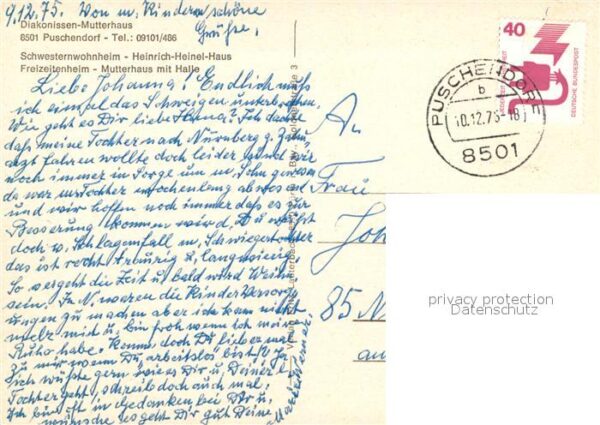 9.12.75. Von m. Kindern schöne
Grüße,
Diakonissen-Mutterhaus
8501 Puschendorf - Tel.: 09101/486
Schwesternwohnheim - Heinrich-Heinel-Haus
Freizeitenheim - Mutterhaus mit Halle
Liebe Johanna! Endlich muß
ich einmal das Schweigen unterbrechen.
Wie geht es Dir liebe Hanna? Ich dachte
daß meine Tochter nach Nürnberg z. Zahn
arzt fahren wollte doch leider sind wir
noch immer in Sorge um m. Sohn gewesen
da war m. Tochter wochenlang
und wir hoffen noch immer daß es zur
Besserung kommen wird. Du weißt
doch w. Schlaganfall m. Schwiegertochter
das ist recht traurig u. langwierig.
So vergeht die Zeit u. bald wird Weihn.
sein. In N. waren die Kinder
zu machen aber ich kann nicht
mehr mit u. bin froh wenn ich meine
Ruhe habe. Komm doch Du lieber mal
zu mir wenn Du arbeitslos bist?
Ich wüßte gern wie es Dir u. Deiner
Tochter geht, schreib doch auch mal.
Ich bin oft in Gedanken bei Dir u.
wünsche es geht Dir gut Deine
An
Frau
Joh
85 N
an
40
DEUTSCHE BUNDESPOST
PUSCHENDORF
b
10.12.75-18
8501
privacy protection
Datenschutz